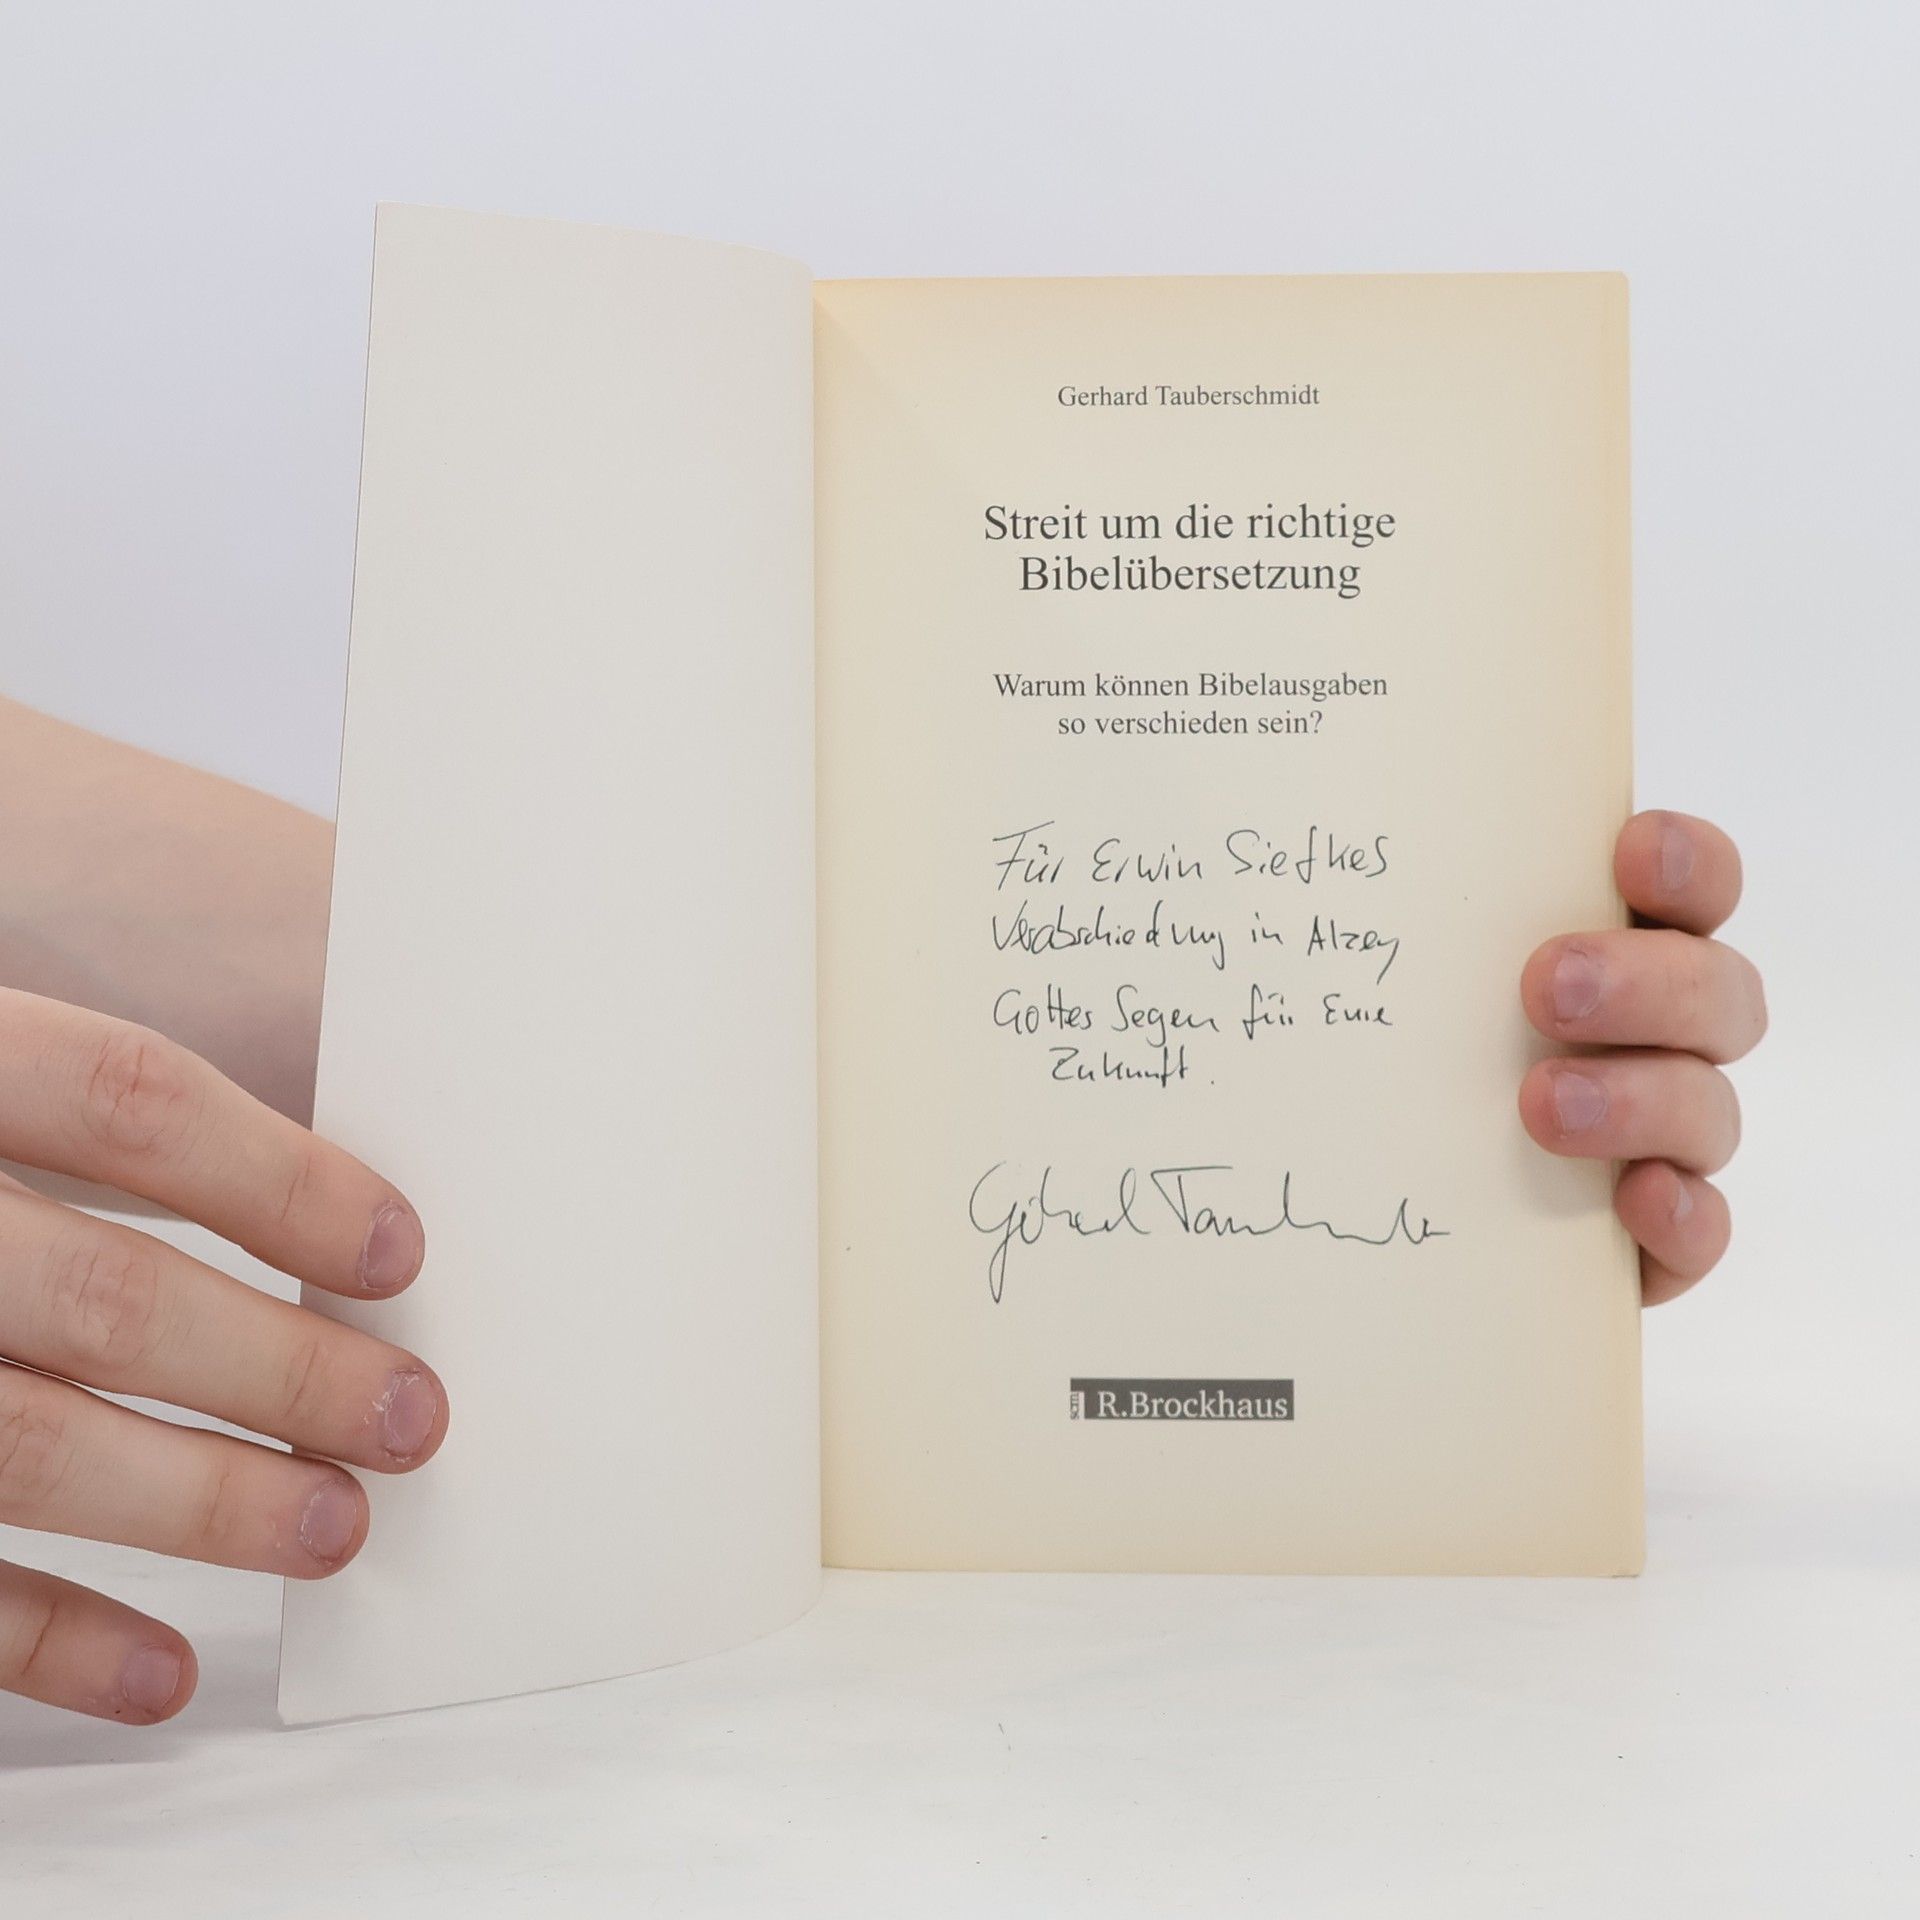 Gerhard Tauberschmidt
Streit um die richtige
Bibelübersetzung
Warum können Bibelausgaben
so verschieden sein?
Für Erwin Siefkes
Verabschiedung in Alzey
Gottes Segen für Eure
Zukunft.
Gerhard Tauberschmidt
scm R.Brockhaus